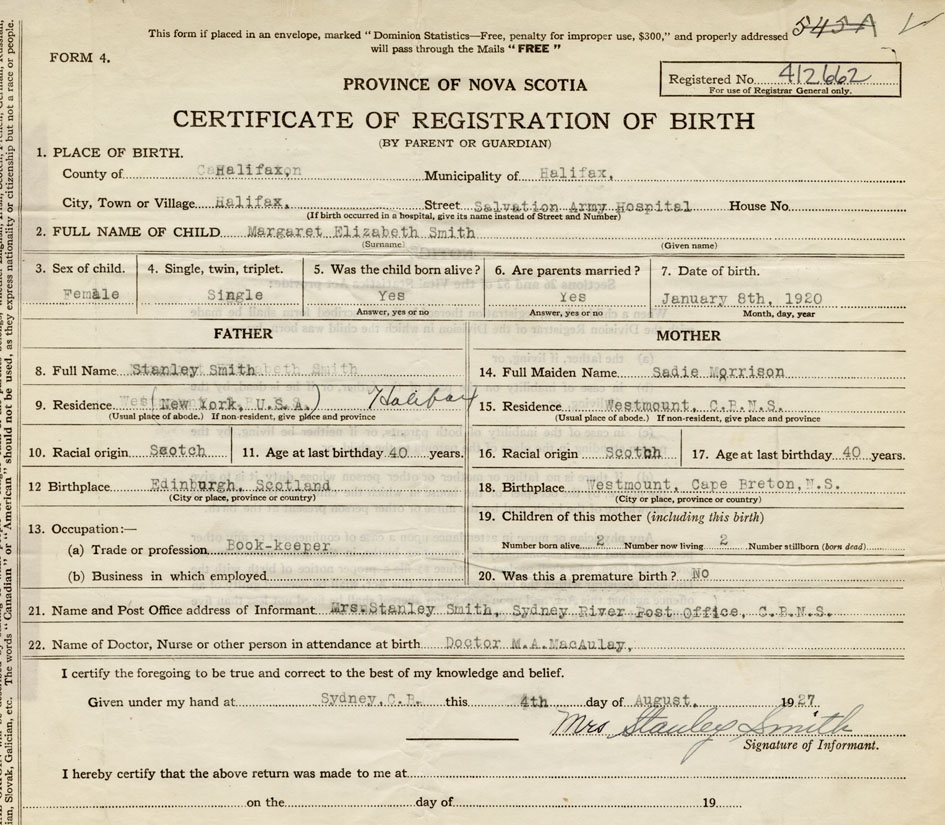 This form if placed in an envelope, marked “ Dominion Statistics—Free, penalty for improper use, $300,” and properly addressed
will pass through the Mails “ FREE ”
545A
FORM 4.
PROVINCE OF NOVA SCOTIA
Registered No. 412662
For use of Registrar General only.
CERTIFICATE OF REGISTRATION OF BIRTH
(BY PARENT OR GUARDIAN)
1. PLACE OF BIRTH.
County of Halifax, Municipality of Halifax,
City, Town or Village Halifax, Street Salvation Army Hospital House No.
(If birth occurred in a hospital, give its name instead of Street and Number)
2. FULL NAME OF CHILD Margaret Elizabeth Smith
(Surname) (Given name)
3. Sex of child. 4. Single, twin, triplet. 5. Was the child born alive? 6. Are parents married? 7. Date of birth.
Female Single Yes Yes January 8th, 1920
Answer, yes or no Answer, yes or no Month, day, year
FATHER MOTHER
8. Full Name Stanley Smith 14. Full Maiden Name Sadie Morrison
9. Residence (New York, U.S.A.) Halifax 15. Residence Westmount, C.B.N.S.
(Usual place of abode.) If non-resident, give place and province (Usual place of abode.) If non-resident, give place and province
10. Racial origin Scotch 11. Age at last birthday 40 years. 16. Racial origin Scotch 17. Age at last birthday 40 years.
12 Birthplace Edinburgh, Scotland 18. Birthplace Westmount, Cape Breton, N.S.
(City or place, province or country) (City or place, province or country)
13. Occupation:— 19. Children of this mother (including this birth)
(a) Trade or profession Book-keeper Number born alive 2 Number now living 2 Number stillborn (born dead)
(b) Business in which employed 20. Was this a premature birth? No
21. Name and Post Office address of Informant Mrs. Stanley Smith, Sydney River Post Office, C.B.N.S.
22. Name of Doctor, Nurse or other person in attendance at birth Doctor M.A.MacAulay,
I certify the foregoing to be true and correct to the best of my knowledge and belief.
Given under my hand at Sydney, C.B. this 4th day of August, 1927
Mrs Stanley Smith
Signature of Informant.
I hereby certify that the above return was made to me at
on the day of 19
ian, Slovak, Galician, etc. The words “ Canadian ” or “ American ” should not be used, as they express nationality or citizenship but not a race or people.